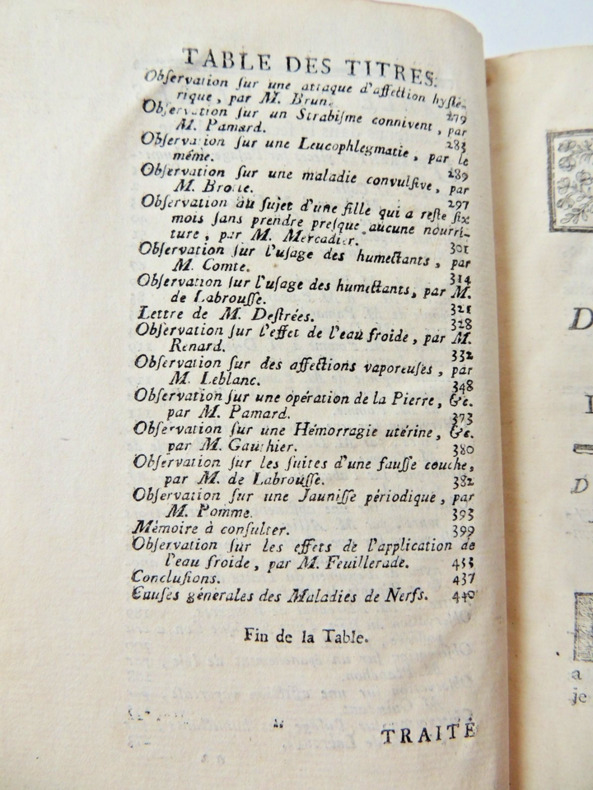 TABLE DES TITRES.
Obſervation ſur une attaque d'affection hyſté-
rique, par M. Brun. 279
Obſervation ſur un Strabiſme connivent, par
M. Pamard. 283
Obſervation ſur une Leucophlegmatie, par le
même. 289
Obſervation ſur une maladie convulſive, par
M. Broue. 297
Obſervation au ſujet d'une fille qui a reſté ſix
mois ſans prendre preſque aucune nourri-
ture, par M. Mercadier. 301
Obſervation ſur l'uſage des humectants, par
M. Comte. 314
Obſervation ſur l'uſage des humectants, par M.
de Labrouſſe. 321
Lettre de M. Deſtrées. 328
Obſervation ſur l'effet de l'eau froide, par M.
Renard. 332
Obſervation ſur des affections vaporeuſes, par
M. Leblanc. 348
Obſervation ſur une opération de la Pierre, &c.
par M. Pamard. 373
Obſervation ſur une Hémorragie utérine, &c.
par M. Gauthier. 380
Obſervation ſur les ſuites d'une fauſſe couche,
par M. de Labrouſſe. 382
Obſervation ſur une Jauniſſe périodique, par
M. Pomme. 393
Mémoire à conſulter. 399
Obſervation ſur les effets de l'application de
l'eau froide, par M. Feuillerade. 433
Concluſions. 437
Cauſes générales des Maladies de Nerfs. 440
Fin de la Table.
TRAITÉ
D
D
a
je